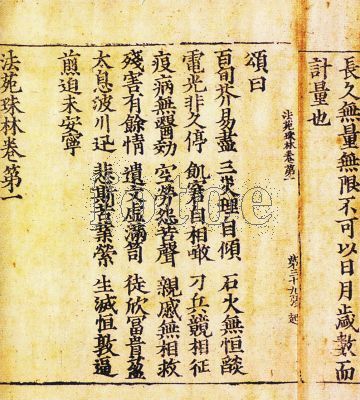 長久無量無限不可以日月歲數而
計量也
法苑珠林卷第一 第三十九
頌曰
百旬芥易盡 三災理自傾 石火無恒燄
電光非久停 飢窘自相噉 刁兵競相征
疫病無醫 空勞怨苦聲 親戚無相救
殘害有餘情 遺文虛滿笥 徒欣富貴盈
太息波川迅 悲苦業縈 生滅恒敦逼
煎迫未安寧
法苑珠林卷第一